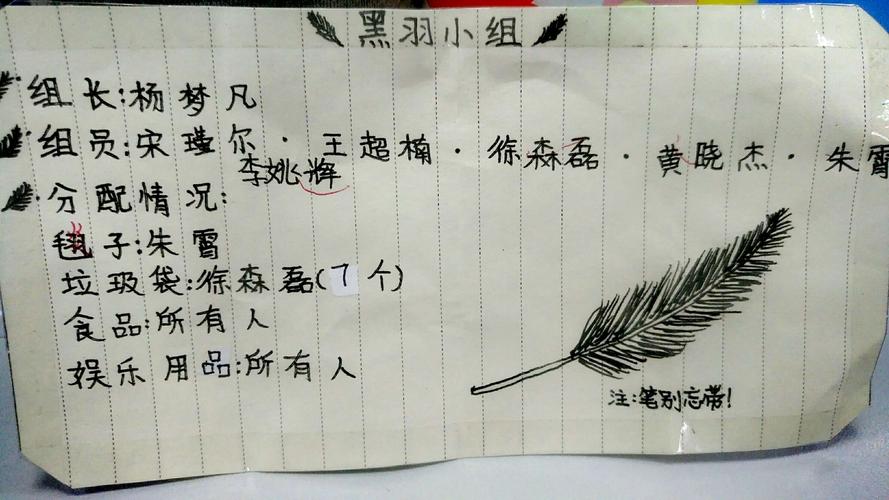 黑羽小组
组长:杨梦凡
组员:宋瑾尔·王超楠·徐森磊·黄晓杰·朱霄
李姚辉
分配情况:
毯子:朱霄
垃圾袋:徐森磊(7个)
食品:所有人
娱乐用品:所有人
注:笔别忘带!